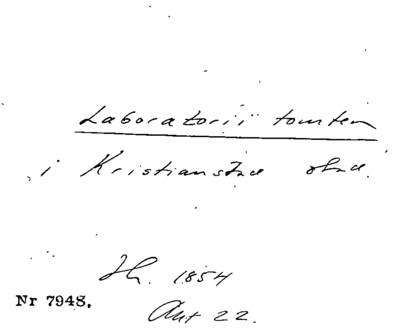 Laboratorii tomten
i Kristianstad stad.
Hr. 1854
Nr 7948.
Art 22.